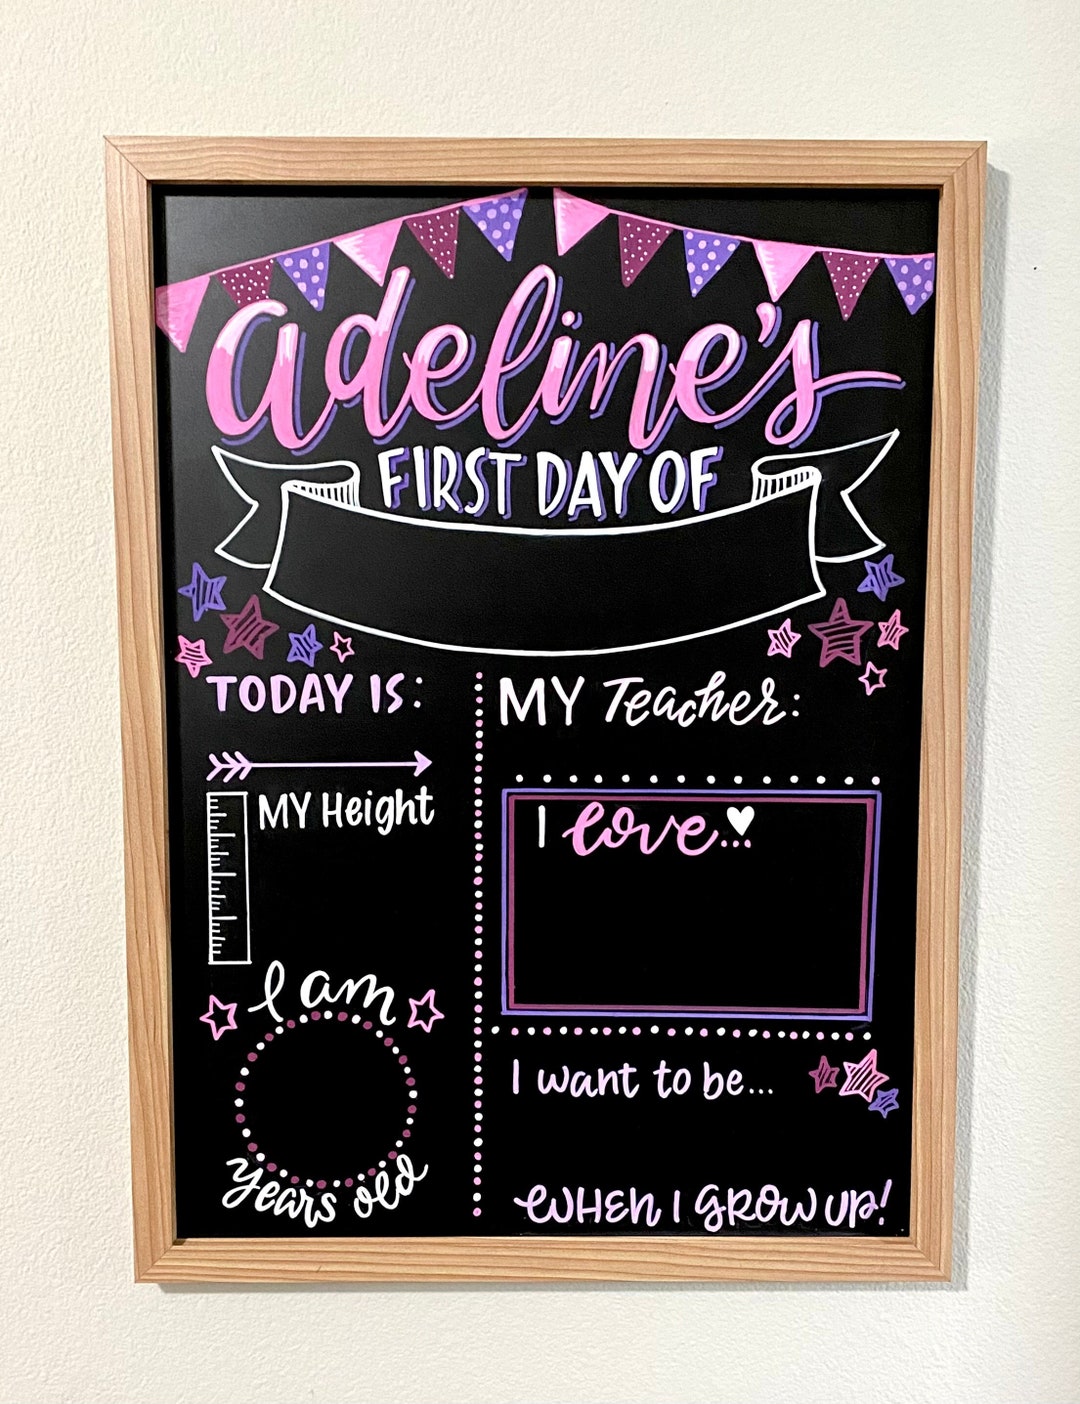 adeline's
FIRST DAY OF
TODAY IS:
MY Height
I am
years old
MY Teacher:
I love...
I want to be...
WHEN I GROW UP!